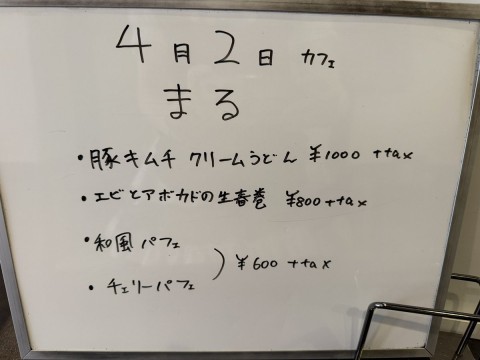 4月2日 カフェ
まる
・豚キムチ クリームうどん ¥1000 +tax
・エビとアボカドの生春巻 ¥800+tax
・和風パフェ
・チェリーパフェ
) ¥600 +tax